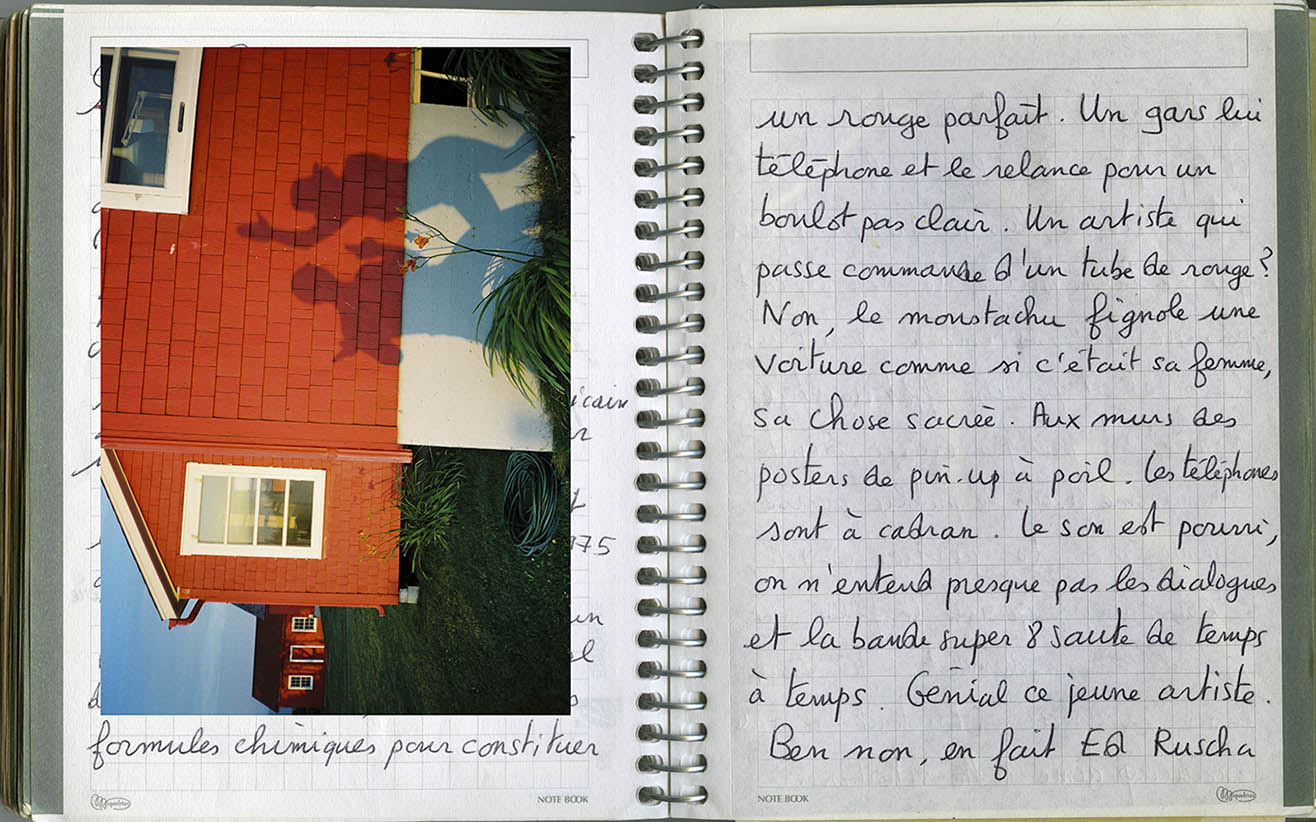 icain
175
un
formules chimiques pour constituer
NOTE BOOK
un rouge parfait. Un gars lui
téléphone et le relance pour un
boulot pas clair. Un artiste qui
passe commande d'un tube de rouge?
Non, le moustachu fignole une
voiture comme si c'était sa femme,
sa chose sacrée. Aux murs des
posters de pin-up à poil. Les téléphones
sont à cadran. Le son est pourri,
on n'entend presque pas les dialogues
et la bande super 8 saute de temps
à temps. Génial ce jeune artiste.
Ben non, en fait Ed Ruscha
NOTE BOOK